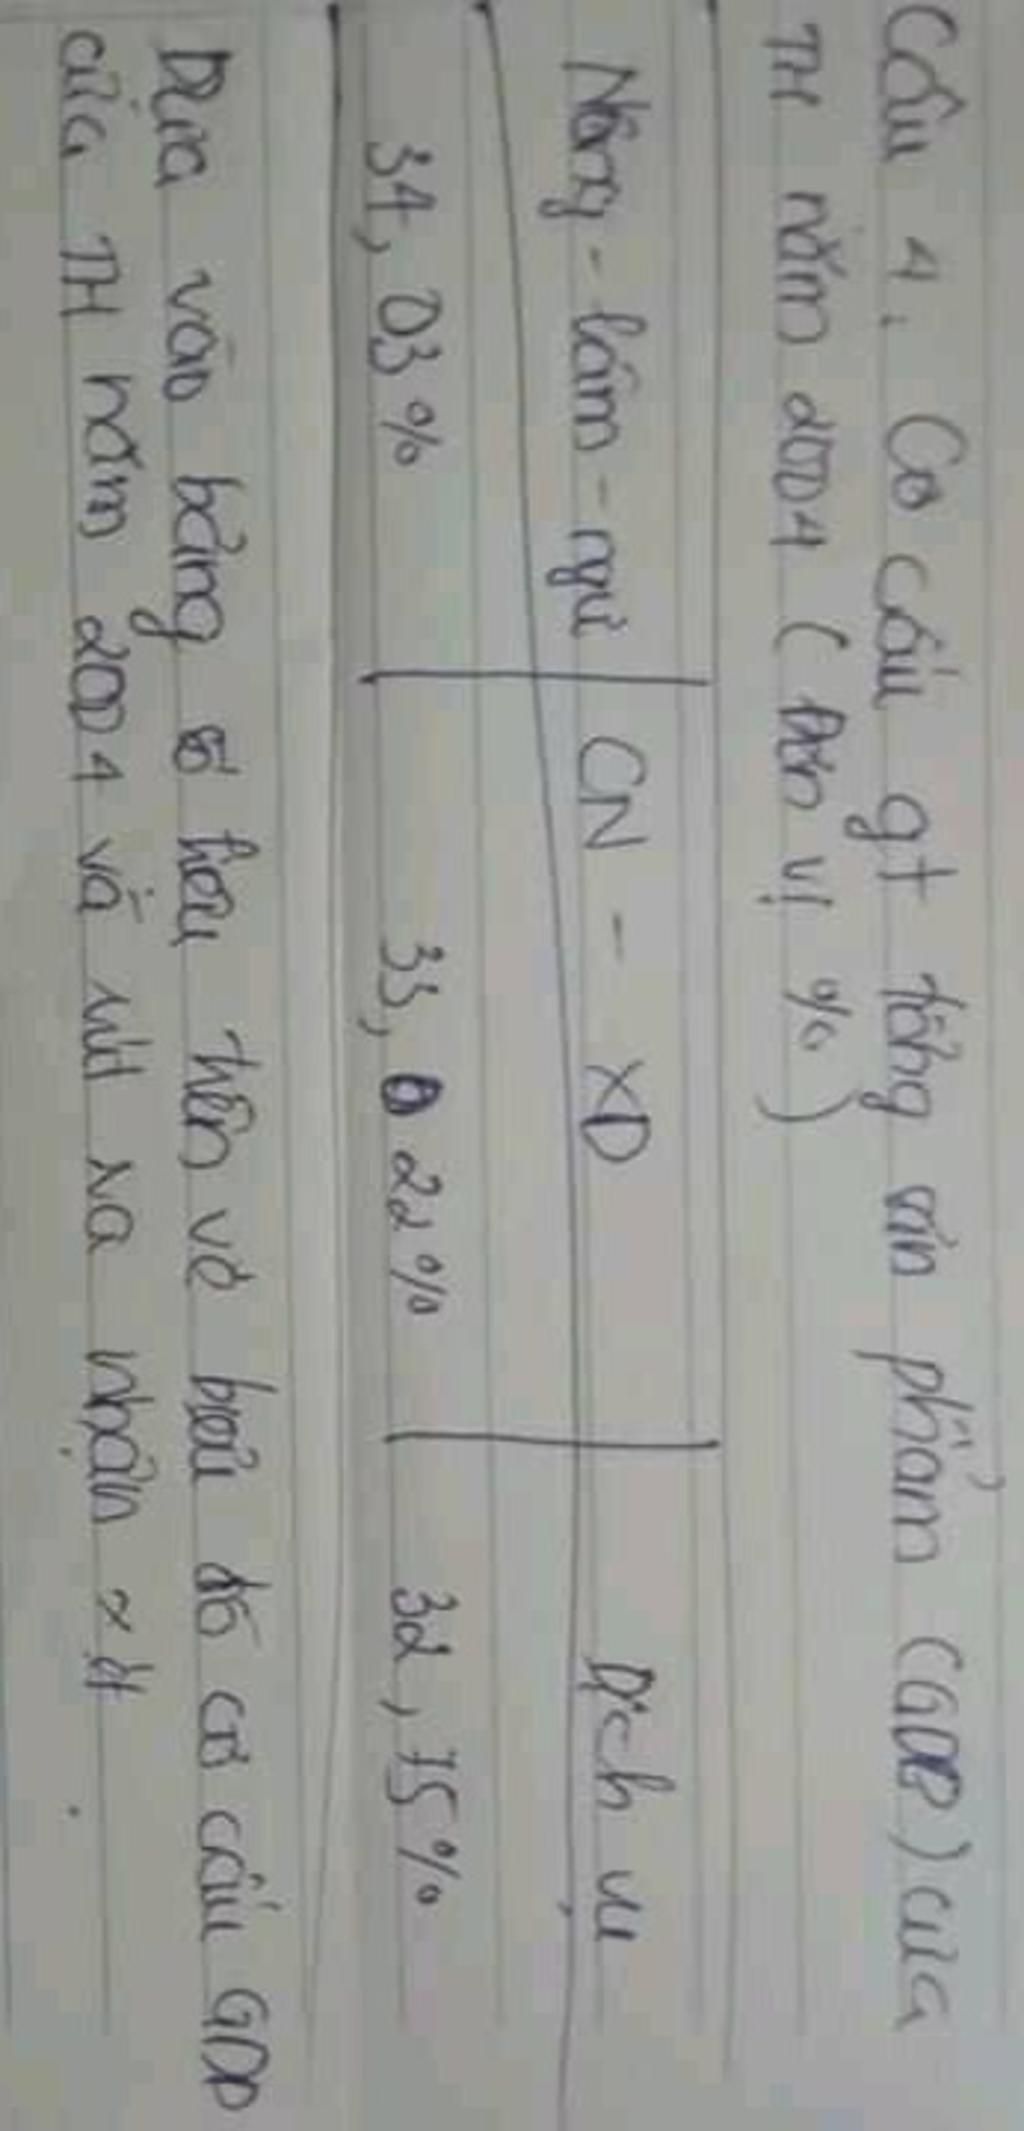 Câu 4. Cơ cấu gt tổng sản phẩm (GDP) của
TH năm 2004 (Đơn vị %)
Nông - lâm - ngư CN - XD Dịch vụ
34,03% 33,22% 32,75%
Dựa vào bảng số liệu trên vẽ biểu đồ cơ cấu GDP
của TH năm 2004 và rút ra nhận xét